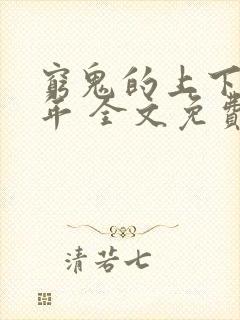 窮鬼的上下
年 全文免費
清若七